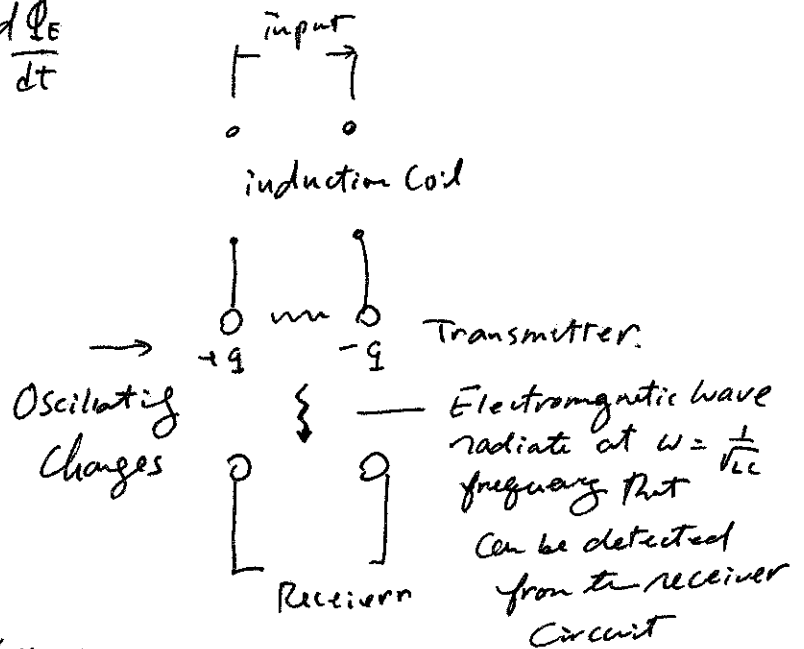 dΦE
dt
input
induction Coil
+q -q
Transmitter.
Oscillating
Charges
Electromgnetic wave
radiate at ω = 1/√LC
frequency that
Can be detected
from the receiver
Circuit
Receivern